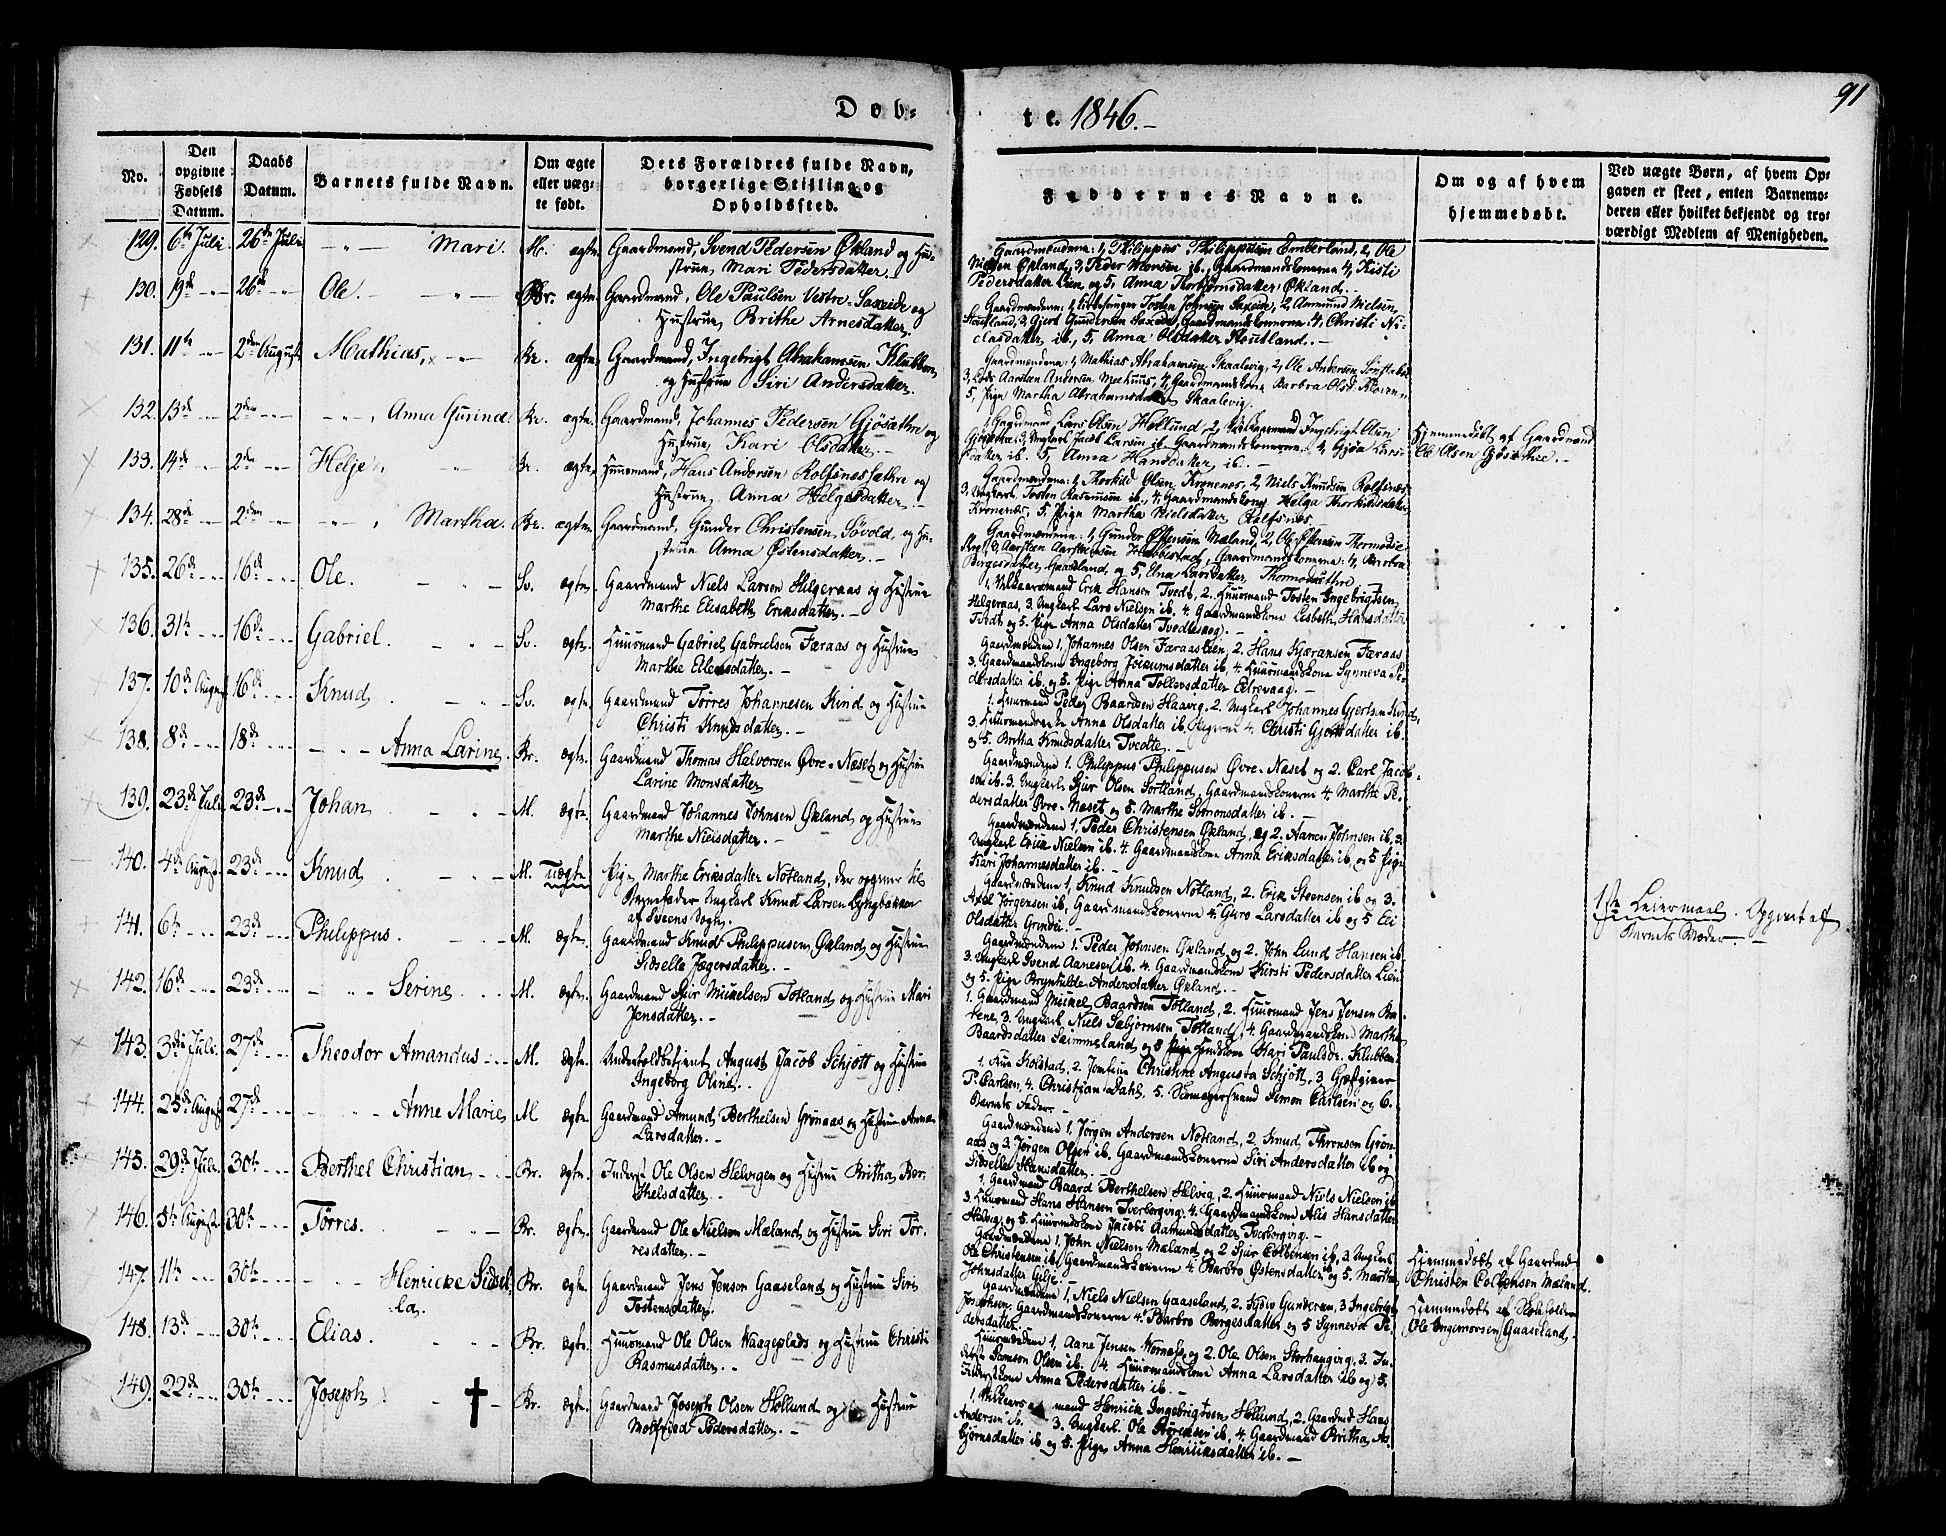 Døb-
te. 1846.-
91
No.
Den opgivne Fødsels Datum.
Daabs Datum.
Barnets fulde Navn.
Om ægte eller uæg-te født.
Dets Forældres fulde Navn, borgerlige Stilling og Opholdssted.
Faddernes Navne.
Om og af hvem hjemmedøbt.
Ved uægte Børn, af hvem Op-
gaven er skeet, enten Barnemo-
deren eller hvilket bekjendt og tro-
værdigt Medlem af Menigheden.
129. 6te Juli. 26de Juli. Mari. M. ægte. Gaardmand, Svend Pedersen Økland og Hu-
strue, Mari Pedersdatter.
Gaardmændene: 1, Philippus Philippusen Emberland, 2, Ole
Nielsen Økland, 3, Peder ib., Gaardmandskonerne 4, Kisti
Pedersdatter Lien, og 5, Anna Thorbjørnsdatter Økland.-
130. 19de 26de Ole. Br. ægte. Gaardmand, Ole Paulsen Vestre-Saxeide og
Hustrue, Brithe Arnesdatter.
Gaardmændene: 1, Tosten Johnsen Saxeide, 2, Anmund Nielsen,
3, Gjert Gundersen Saxeide, Gaardmandskonerne: 4, Christi Ni-
clasdatter, ib., 5, Anna Olsdatter
131. 11te 2den August Mathias, Br. ægte. Gaardmand, Ingebrigt Abrahamsen Klubben,
og Hustrue Siri Andersdatter.
Gaardmændene: 1, Mathias Abrahamsen, Skaalevig, 2, Ole Andersen
3, Aarstan Andersen Meehuus, 4, Gaardmandskone Barbra Olsd.
5, Pige Martha Abrahamsdatter Skaalevig.
132. 13de 2den Anna Gurina. Br. ægte. Gaardmand, Johannes Pedersen Gjøsæthre og
Hustrue, Kari Olsdatter.
1, Gaardmand Lars Olsen Hollund, 2, Ingebrigt Olsen
3, Ungkarl Jacob Larsen ib. Gaardmandskonerne, 4, Gjøa Lars-
datter ib. 5, Anna Hansdatter, ib.
Hjemmedøbt af Gaardmand
Ole Olsen Gjøsæthre.-
133. 14de 2den Helje Br. ægte. Huusmand, Hans Andersen Rolfsnessæthre og
Hustrue, Anna Helgesdatter.
Gaardmændene: 1, Thorkild Olsen Kronenes, 2, Niels Knudsen Rolfsnes,
3, Ungkarl, Tosten Rasmusen ib., 4, Gaardmandskone Helga Thorkildsdatter
Kronenes, 5, Pige Martha Nielsdatter Rolfsnes.
134. 28de 2den Martha. Br. ægte. Gaardmand, Gunder Christensen, Søvold, og Hu-
strue Anna Østensdatter.
Gaardmændene: 1, Gunder Østensen Mæland, 2, Ole
3, Aarstan Hambestad, Gaardmandskonerne: 4, Barbra
Børgesdatter, Gaasland, og 5, Elna Larsdatter,
135. 26de 16de Ole. Sv. ægte. Gaardmand Niels Larsen Helgeraas og Hustrue
Marthe Elisabeth Eriksdatter.
1, Erik Hansen Tvedt, 2. Huusmand Tosten Ingebrigtsen
Helgeraas, 3. Ungkarl Lars Nielsen ib. 4. Gaardmandskone Lisbeth Hansdatter
Tvedt og 5. Pige Anna Olsdatter Tvedteskog.
136. 31te 16de Gabriel. Sv. ægte. Huusmand Gabriel Gabrielsen Færaas og Hustrue
Marthe Ellensdatter.
Gaardmændene 1, Johannes Olsen Færaaslien, 2. Hans Kjæransen Færaas
3. Gaardmandskone Ingeborg ib, 4. Huusmandskone Synneva Pe-
dersdatter ib. og 5. Pige Anna Tollevsdatter Eltrevaag.
137. 10de August 16de Knud Sv. ægte. Gaardmand Tørres Johannesen Kind og Hustrue
Christi Knudsdatter.
1. Huusmand Peder Baardsen Haavig, 2. Ungkarl Johannes Gjertsen Kind,
3. Huusmandsenke Anna Olsdatter ib, Pigerne 4. Christi Gjertsdatter ib.
og 5. Britha Knudsdatter Tvedte.
138. 8de 18de Anna Larine. Br. ægte. Gaardmand Thomas Halvorsen Øvre-Næset og Hustrue
Larine Monsdatter
Gaardmændene 1. Philippus Philippusen Øvre-Næset og 2. Carl Jacob-
sen ib. 3. Ungkarl Sjur Olsen Sortland, Gaardmandskonerne 4. Marthe Pe-
dersdatter Øvre-Næset og 5. Marthe Simonsdatter ib.
139. 23de Juli 23de Johan M. ægte. Gaardmand Johannes Johnsen Økland og Hustrue
Marthe Nielsdatter.
Gaardmændene 1, Peder Christensen Økland, og 2. Aanen Johnsen ib, 3.
Ungkarl Erik Nielsen ib. 4. Gaardmandskone Anna Eriksdatter ib, og 5 Pige
Kari Johannesdatter ib.
140. 4de August 23de Knud M. uægte Pige Marthe Eriksdatter Notland, der opgiver til
Barnefader Ungkarl Knud Larsen Lyngbakken
af Sveens Sogn.
Gaardmændene 1, Knud Knudsen Notland, 2. Erik Steensen ib og 3.
Axel Jørgensen ib, Gaardmandskonerne 4. Guro Larsdatter ib og 5 Eli
Olsdatter Grindei.
1ste Leiermaal. Opgivet af
Barnets Moder.
141. 6te 23de Philippus. M. ægte. Gaardmand Knud Philippusen Økland og Hustrue
Sidselle Jægersdatter.
Gaardmændene 1. Peder Johnsen Økland og 2. John Lund Hansen ib
3. Ungkarl Svend Aanesen ib. 4. Gaardmandskone Kirsti Pedersdatter Lien
og 5. Pige Brynhilde Andersdatter Økland.
142. 16de 23de Serine. M. ægte. Gaardmand Sjur Mickelsen Totland og Hustrue Mari
Jensdatter.
1. Gaardmand Mickel Baardsen Totland, 2. Huusmand Jens Jensen
3. Ungkarl Niels Sæbjørnsen Totland, 4. Gaardmandskone Martha
Baardsdatter Saimmesland og 5 Kari Paulsdr. Klubben.
143. 3die Juli 27de Theodor Amandus M. ægte. Underfoldbetjent August Jacob Schjøtt og Hustrue
Ingeborg Oline.
1. Kolstad, 2. Jomfrue Christine Augusta Schjøtt, 3. Gjæstgiver
P. Carlsen, 4. Christian Dahl, 5. Simon Carlsen og 6.
Barnets Fader.
144. 25de August 27de Anne Marie. M ægte. Gaardmand Amund Berthelsen Grønaas og Hustrue Anna
Larsdatter.
Gaardmændene 1. Jørgen Andersen Notland, 2. Knud Thronsen Grøn-
aas og 3. Jørgen Olsen ib. Gaardmandskonerne Siri Andersdatter ib og
Sidselle Hansdatter.
145. 29de Juli 30te Berthel Christian Br. ægte. Inderst Ole Olsen Helvigen og Hustrue Britha Ber-
thelsdatter.
1. Gaardmand Baard Berthelsen Helvig, 2. Huusmand Niels Nielsen ib
3. Huusmand Hans Hansen Tverborgvig, 4. Gaardmandskone Alis Hansdatter
Helvig, og 5. Huusmandskone Jacobi Aamundsdatter Tverborgvig.
146. 5te August 30te Tørres. Br. ægte. Gaardmand Ole Nielsen Mæland og Hustrue Siri Tør-
resdatter.
Gaardmændene 1. John Nielsen Mæland og 2 Sjur Colbensen ib, 3. Ungkarl
Ole Christensen ib, Gaardmandskonerne 4. Barbro Østensdatter ib og 5. Martha
Johnsdatter Gilje.
Hjemmedøbt af Gaardmd.
Christen Colbensen Mæland
147. 11te 30te Henricke Sidsel-
la. Br. ægte. Gaardmand Jens Jensen Gaaseland og Hustrue Siri
Tostensdatter.
Gaardmændene 1, Niels Nielsen Gaaseland, 2. Gundersen, 3 Ingebrigt
Josephsen, Gaardmandskonerne 4. Barbro Børgesdatter og 5 Synneva Pe-
dersdatter.
Hjemmedøbt af Skoleholder
Ole Ingemorsen Gaaseland.
148. 13de 30te Elias. Br. ægte. Huusmand Ole Olsen Waageplads og Hustrue Christi
Rasmusdatter.
Huusmændene 1, Aane Jensen og 2. Ole Olsen Storhaugvig, 3. In-
derst Samson Olsen ib. 4 Huusmandskone Anna Larsdatter ib og 5.
Inderstkone Anna Pedersdatter ib.
149. 22de 30te Joseph Br. ægte. Gaardmand Joseph Olsen Hollund og Hustrue
Pedersdatter.
1. mand Henrik Ingebrigtsen Hollund, 2. Gaardmd Hans
Andersen ib. 3. Ungkarl Ole ib, 4. Gaardmand Britha As-
bjørnsdatter ib og 5. Pige Anna Henriksdatter ib.